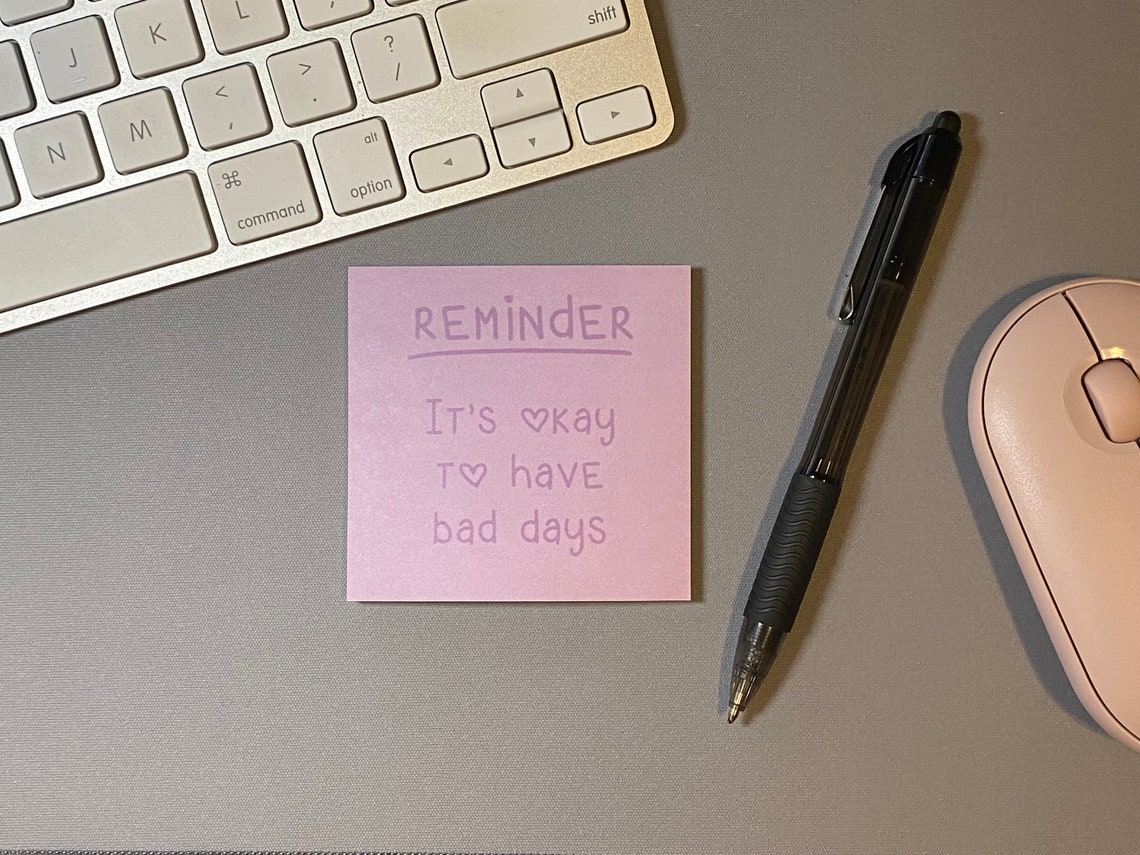 J K L shift
N M < , > . ? /
⌘ alt
command option
REMINDER
IT'S ♡KAY
T♡ HAVE
bad days